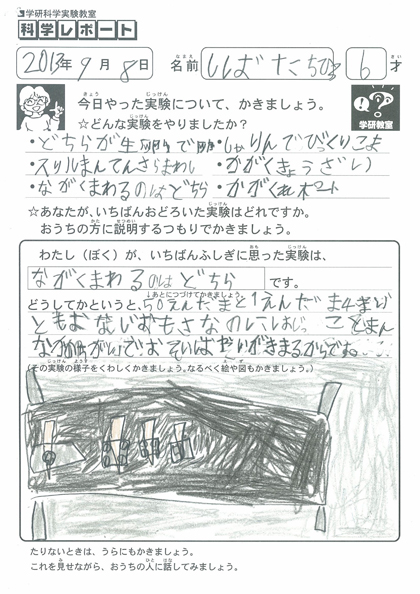 学研科学実験教室
科学レポート
2013年 9月 8日 名前 しばた 6才
今日やった実験について、かきましょう。
☆どんな実験をやりましたか？
学研教室
・どちらが生
・しゃりんでびっくりこま
・スリルまんてんさらまわし
・かがくきょうざい
・ながくまわるのはどちら
・かがくれポート
☆あなたが、いちばんおどろいた実験はどれですか。
おうちの方に説明するつもりでかきましょう。
わたし（ぼく）が、いちばんふしぎに思った実験は、
ながくまわるのはどちら です。
↓あとにつづけてかきましょう
どうしてかというと、50えんだまと1えんだま4まい
ともおなじおもさなのに
（その実験の様子をくわしくかきましょう。なるべく絵や図もかきましょう。）
たりないときは、うらにもかきましょう。
これを見せながら、おうちの人に話してみましょう。